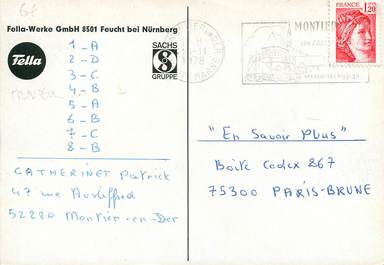 Fella-Werke GmbH 8501 Feucht bei Nürnberg
Fella
SACHS
GRUPPE
1 - A
2 - D
3 - C
4 - B
5 - A
6 - B
7 - C
8 - B
CATHERINET Patrick
47 rue
52220 Montier-en-Der
1978
MARNE
MONTIER
FRANCE
1,20
"En Savoir Plus"
Boîte Codex 867
75300 PARIS-BRUNE